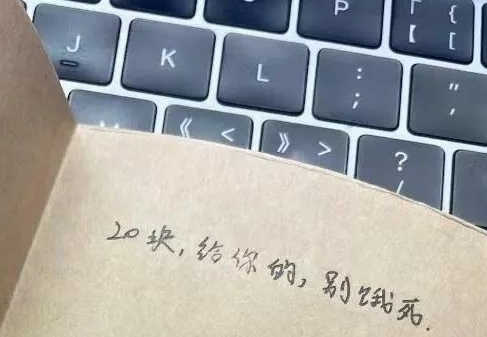 P
「 {
【 [
J
K
L
:
;
"
'
《 <
》 >
?
/
20块,给你的,别饿死.